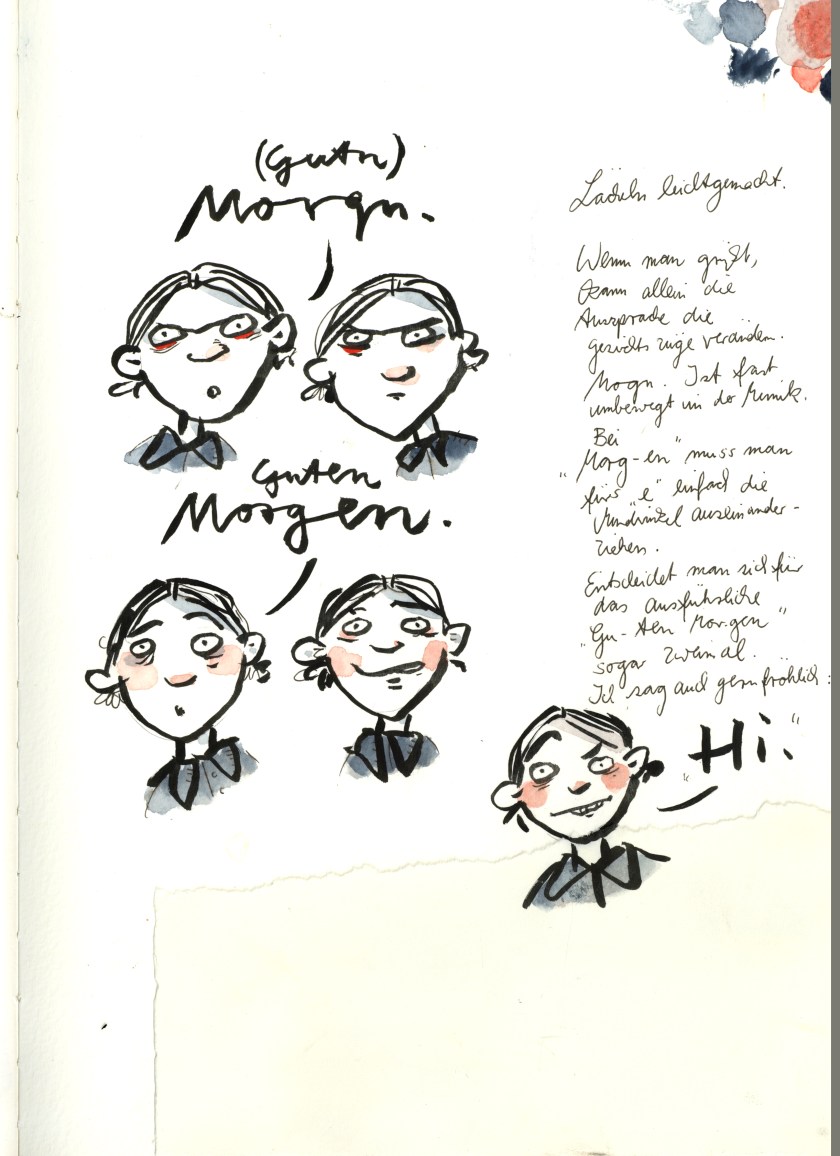 (Gutn)
Morgn.
Guten
Morgen.
Lächeln leichtgemacht.
Wenn man grüßt,
kann allein die
Aussprache die
gesichtszüge verändern.
Morgn. Ist fast
unbewegt in der Mimik.
Bei
"Morg-en" muss man
fürs "e" einfach die
Mundwinkel auseinander-
ziehen.
Entscheidet man sich für
das ausführliche
"Gu-ten Mor-gen"
sogar zweimal.
Ich sag auch gern fröhlich:
"Hi."